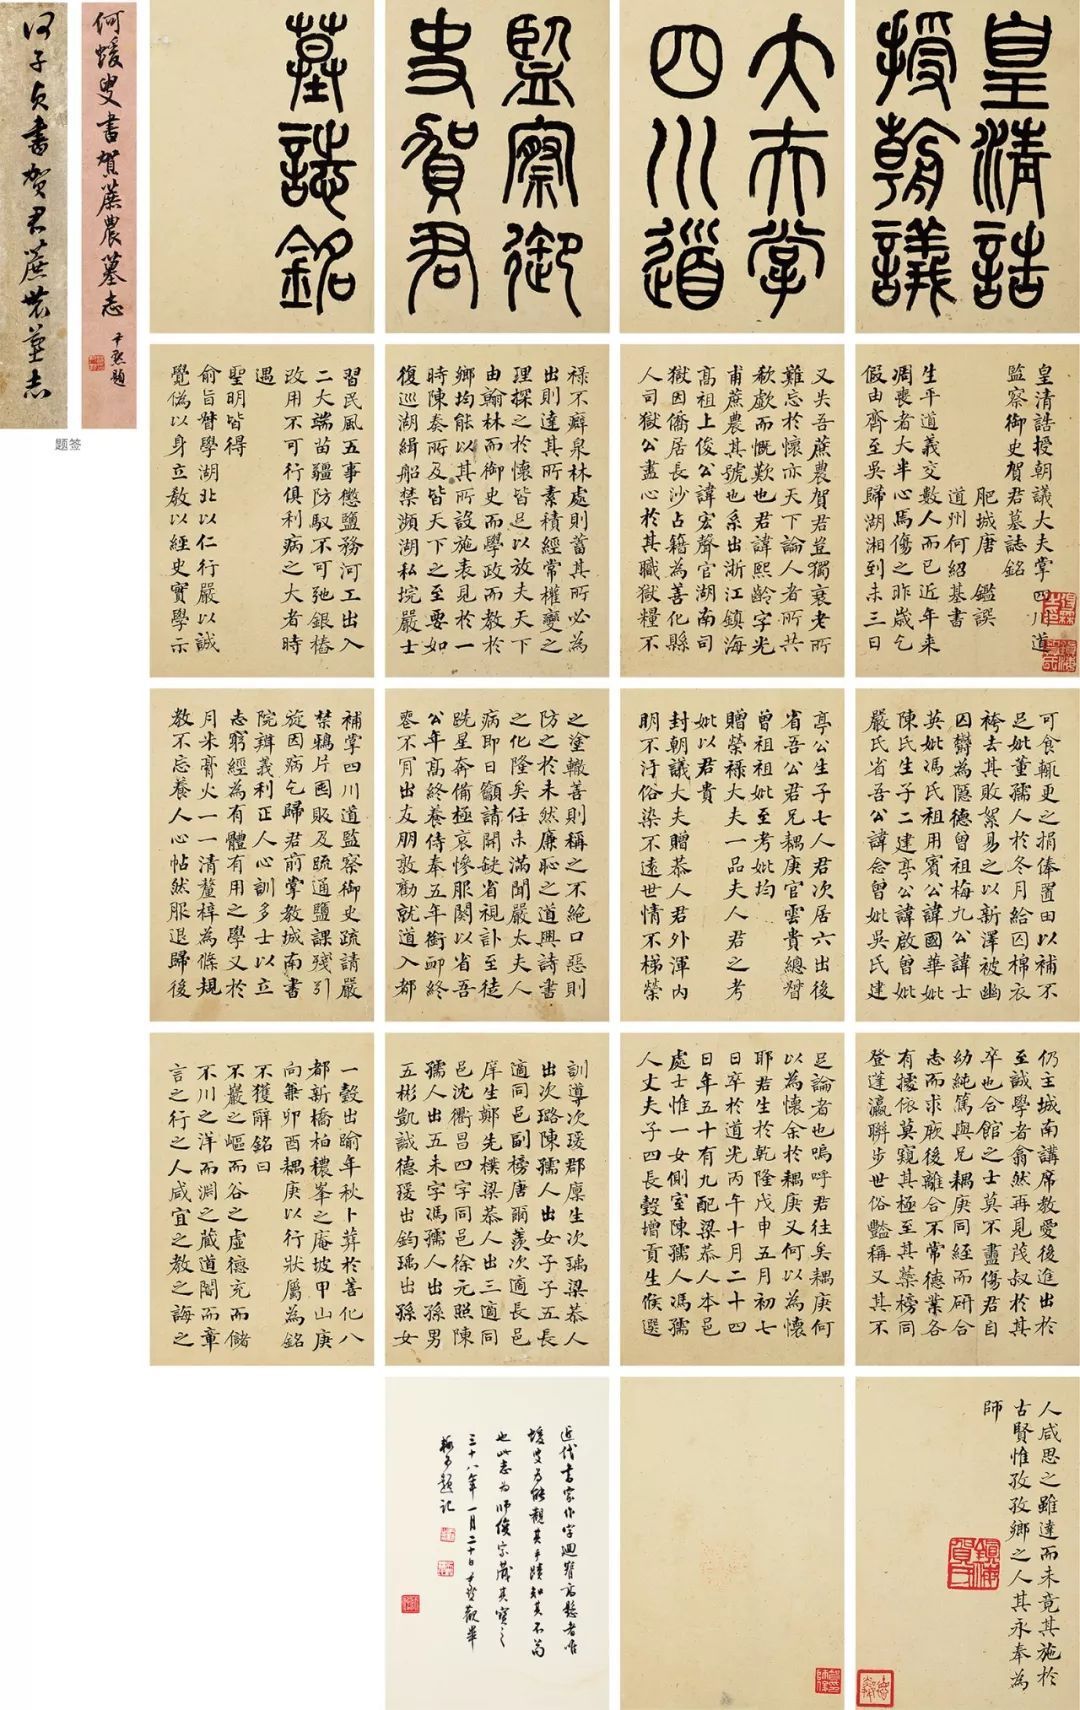 何子貞書賀君蔗農墓志
何蝯叟書賀蔗農墓志
尹默題
题签
皇清誥
授朝議
大夫掌
四川道
監察御
史賀君
墓誌銘
皇清誥授朝議大夫掌四川道
監察御史賀君墓誌銘
肥城唐 鑑譔
道州何紹基書
生平道義交數人而已近年来
凋喪者大半心焉傷之昨歲乞
假由齊至吳歸湖湘到未三日
又失吾蔗農賀君豈獨衰老所
難忘於懷亦天下論人者所共
欷歔而慨歎也君諱熙齡字光
甫蔗農其號也系出浙江鎮海
高祖上俊公諱宏聲官湖南司
獄因僑居長沙占籍為善化縣
人司獄公盡心於其職獄糧不
可食輒更之捐俸置田以補不
足妣董孺人於冬月給囚棉衣
袴去其敗絮易之以新澤被幽
囚欝為隱德曾祖梅九公諱士
英妣馮氏祖用賓公諱國華妣
陳氏生子二建亭公諱啟曾妣
嚴氏省吾公諱念曾妣吳氏建
亭公生子七人君次居六出後
省吾公君兄耦庚官雲貴總督
曾祖祖妣至考妣均
贈榮祿大夫一品夫人君之考
妣以君貴
封朝議大夫贈恭人君外渾內
明不汙俗染不遠世情不梯榮
祿不癖泉林處則蓄其所必為
出則達其所素積經常權變之
理探之於懷皆足以放夫天下
由翰林而御史而學政而教於
鄉均能以其所設施表見於一
時陳奏所及皆天下之至要如
復巡湖緝船禁瀕湖私垸嚴士
習民風五事懲鹽務河工出入
二大端苗疆防馭不可弛銀樁
改用不可行俱利病之大者時
遇
聖明皆得
俞旨督學湖北以仁行嚴以誠
覺偽以身立教以經史實學示
之塗轍善則稱之不絕口惡則
防之於未然廉恥之道興詩書
之化隆矣任未滿聞嚴太夫人
病即日籲請開缺省視訃至徒
跣星奔備極哀慘服闋以省吾
公年高終養侍奉五年銜卹終
喪不肎出友朋敦勸就道入都
補掌四川道監察御史疏請嚴
禁鴉片囤販及疏通鹽課殘引
旋因病乞歸君前掌教城南書
院辨義利正人心訓多士以立
志窮經為有體有用之學又於
月米膏火一一清釐梓為條規
教不忘養人心帖然服退歸後
仍主城南講席教愛後進出於
至誠學者翕然再見茂叔於其
卒也合館之士莫不盡傷君自
幼純篤與兄耦庚同經而研合
志而求厥後離合不常德業各
有據依莫窺其極至其蘂榜同
登蓬瀛聯步世俗豔稱又其不
足論者也嗚呼君往矣耦庚何
以為懷余於耦庚又何以為懷
耶君生於乾隆戊申五月初七
日卒於道光丙午十月二十四
日年五十有九配梁恭人本邑
處士惟一女側室陳孺人馮孺
人丈夫子四長瑴增貢生候選
訓導次瑗郡廩生次瑀梁恭人
出次璐陳孺人出女子子五長
適同邑副榜唐爾羨次適長邑
庠生鄭先樸梁恭人出三適同
邑沈衢昌四字同邑徐元照陳
孺人出五未字馮孺人出孫男
五彬凱誠德瑗出鈞瑀出孫女
一瑴出踰年秋卜葬於善化八
都新橋柏穠峯之庵坡甲山庚
向兼卯酉耦庚以行狀屬為銘
不獲辭銘曰
不巖之嶇而谷之虛德充而儲
不川之洋而淵之蔵道闇而章
言之行之人咸宜之教之誨之
人咸思之雖達而未竟其施於
古賢惟孜孜鄉之人其永奉為
師
近代書家作字迴腕高懸者唯
蝯叟為能觀其手蹟知其不茍
也此志為師俊宗藏其寶之
三十八年一月二十日尹默觀畢
題記